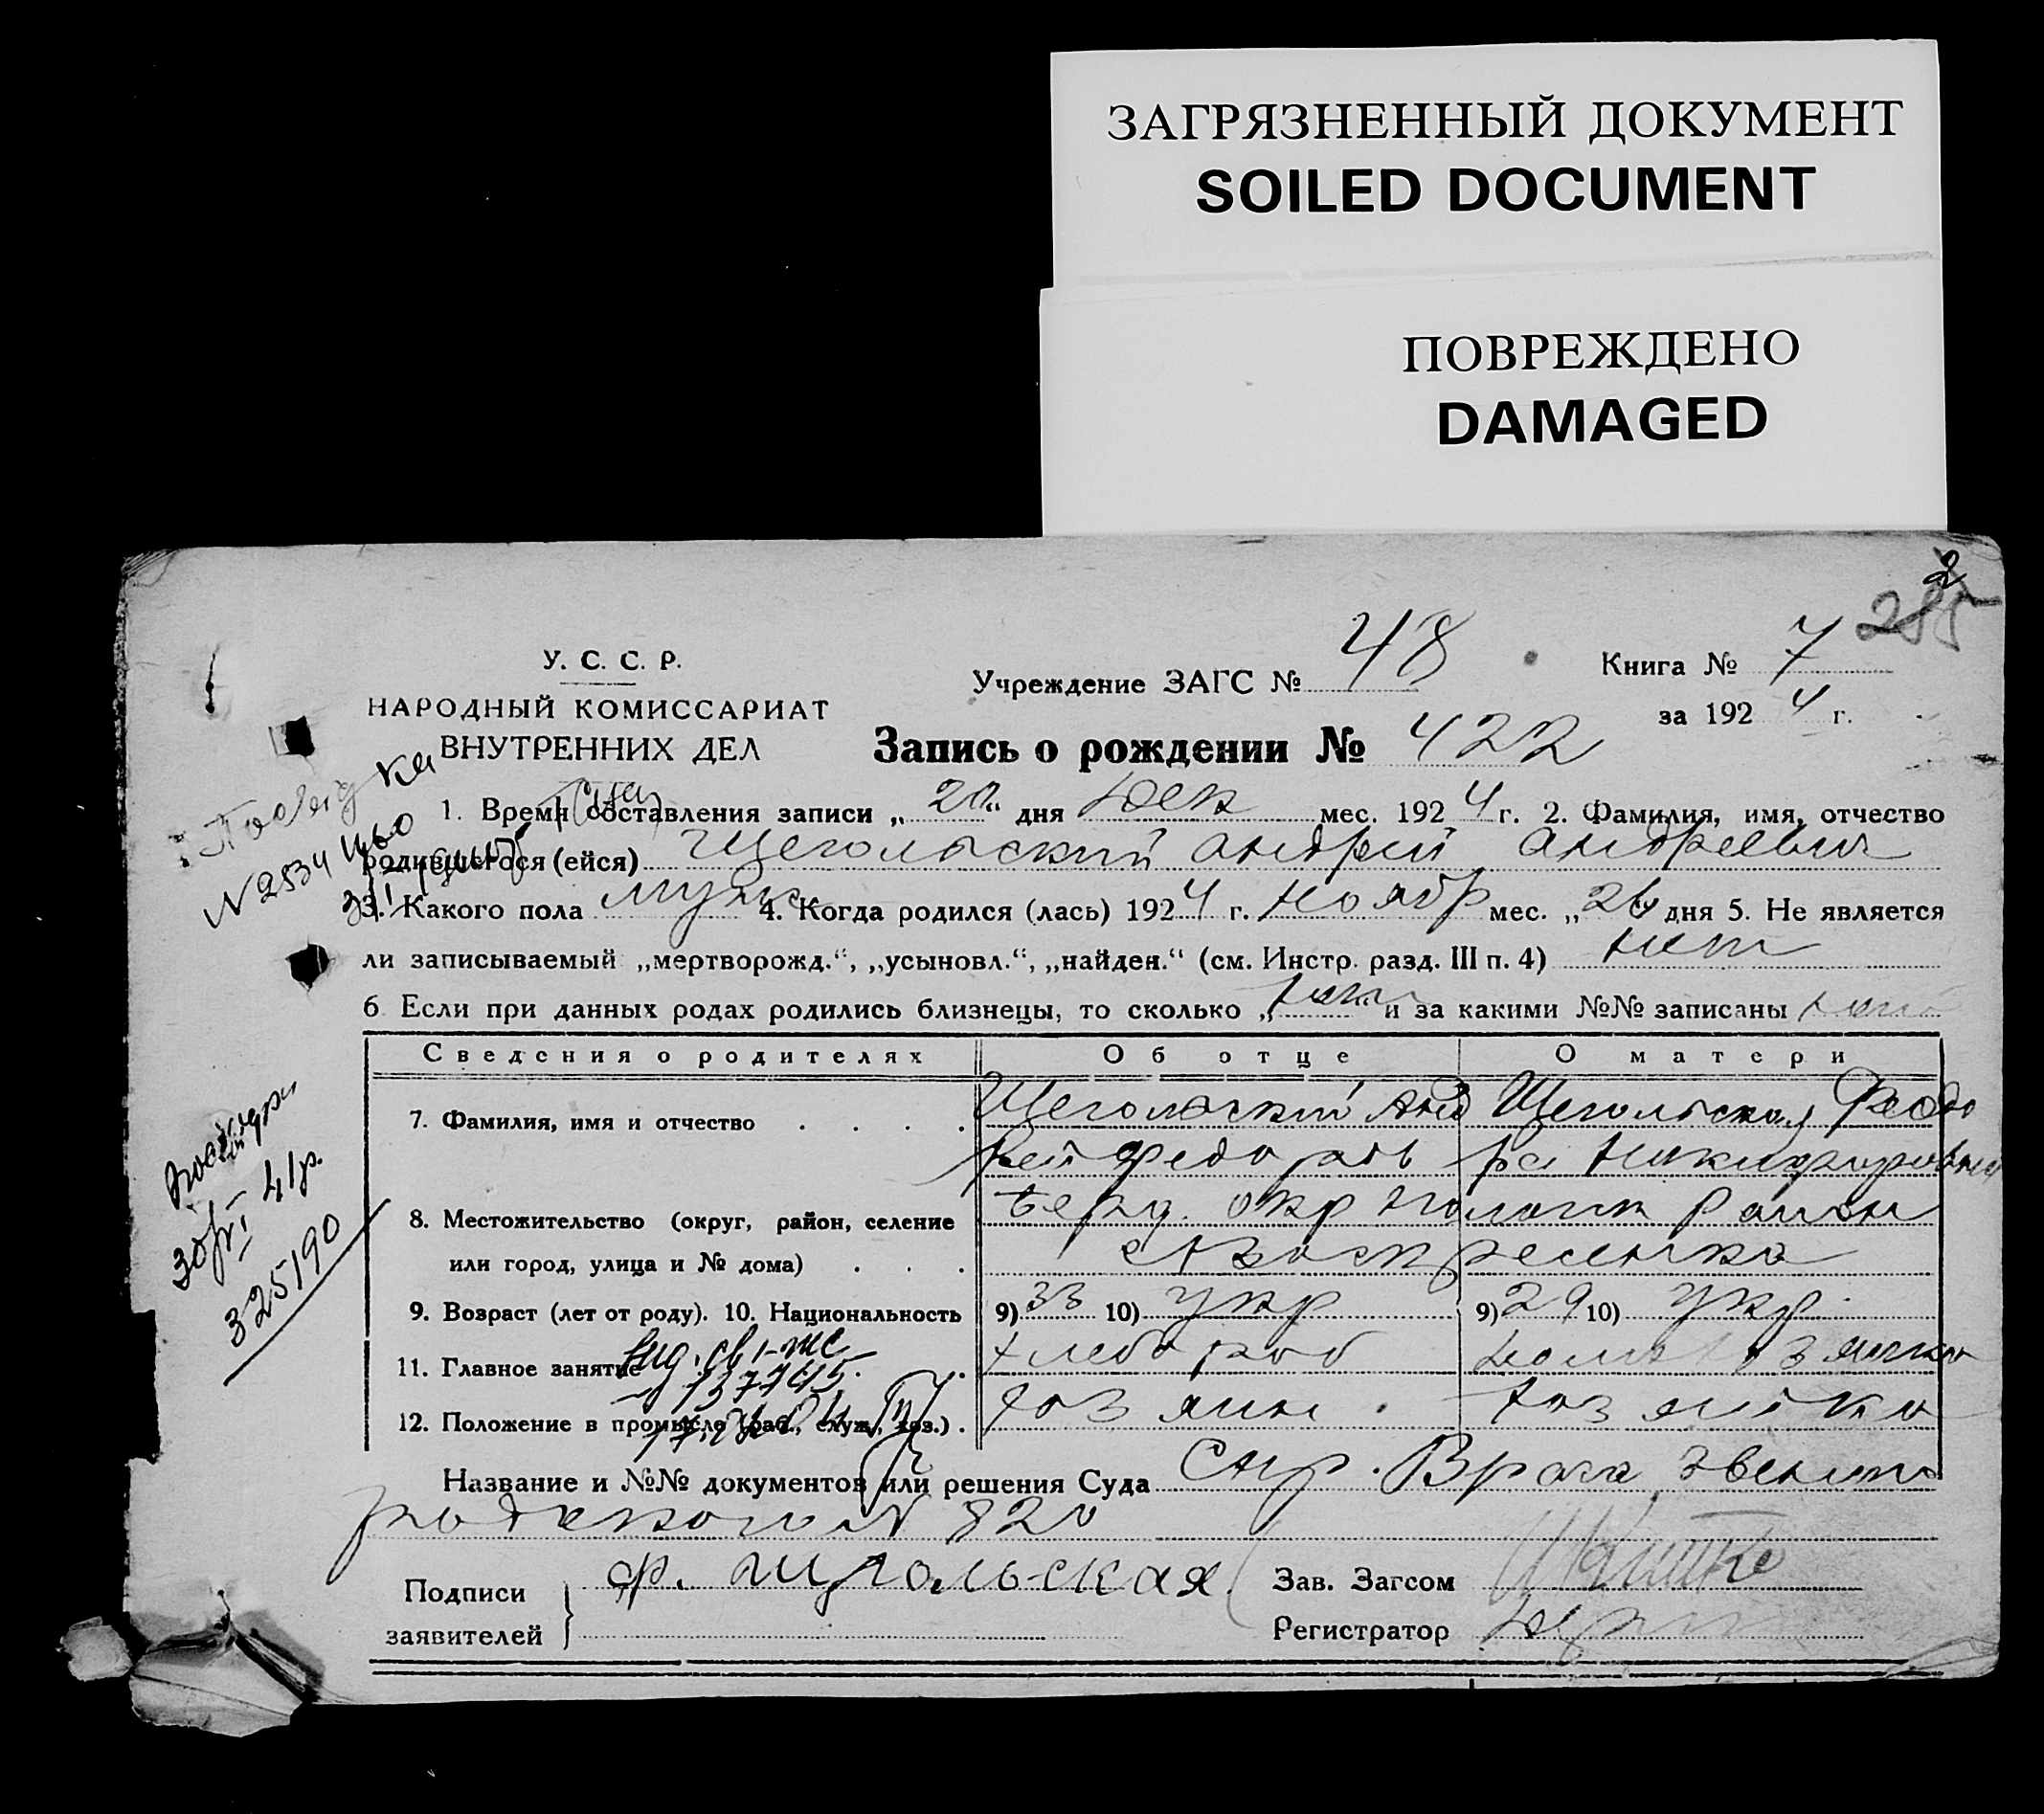 ЗАГРЯЗНЕННЫЙ ДОКУМЕНТ
SOILED DOCUMENT
ПОВРЕЖДЕНО
DAMAGED
2
285
У. С. С. Р.
НАРОДНЫЙ КОМИССАРИАТ
ВНУТРЕННИХ ДЕЛ
Учреждение ЗАГС № 48
Книга № 7
за 1924 г.
Запись о рождении № 422
1. Время составления записи „20“ дня Дек мес. 1924 г. 2. Фамилия, имя, отчество
родившегося (ейся) Щегольский Андрей Андреевич
3. Какого пола муж 4. Когда родился (лась) 1924 г. Ноябр мес. „26 дня 5. Не является
ли записываемый „мертворожд.“, „усыновл.“, „найден.“ (см. Инстр. разд. III п. 4) нет
6 Если при данных родах родились близнецы, то сколько „нет“ и за какими №№ записаны нет
N 2534
Сведения о родителях Об отце О матери
7. Фамилия, имя и отчество Щегольский Анд Щегольская Федо
рей Федор ра Никифоровна
8. Местожительство (округ, район, селение
или город, улица и № дома)
окр район
9. Возраст (лет от роду). 10. Национальность 9) 33 10) укр 9) 29 10) укр.
11. Главное занятие хлебороб
12. Положение в промысле (раб., служ., хоз.) хозяин. хозяйка
41р.
325190
137745.
Название и №№ документов или решения Суда Спр. Врача Звениго
родского N 820
Подписи
заявителей
Ф. Щгольская
Зав. Загсом
Регистратор